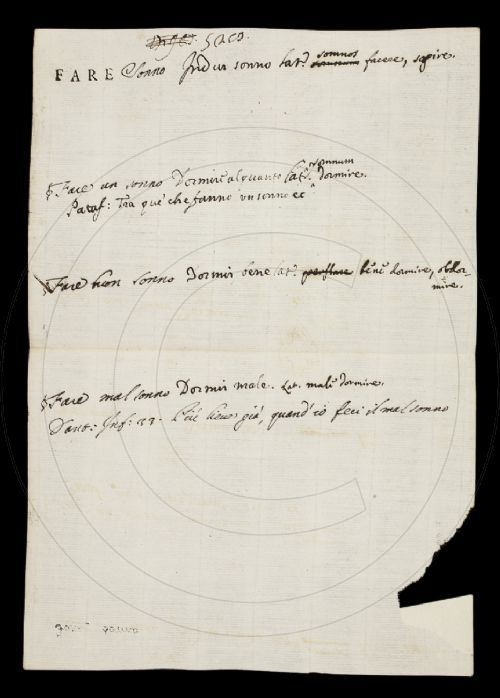 FARE Sonno Indur sonno lat. somnos facere, sopire.
§. Fare un sonno Dormire alquanto lat. somnum dormire.
Pataf: Tra que' che fanno un sonno ec
§ Fare buon sonno Dormir bene lat. bene dormire, obdor
mire.
§. Fare mal sonno Dormir male. Lat. male dormire.
Dant: Inf: 33. già, quand'io feci il mal sonno